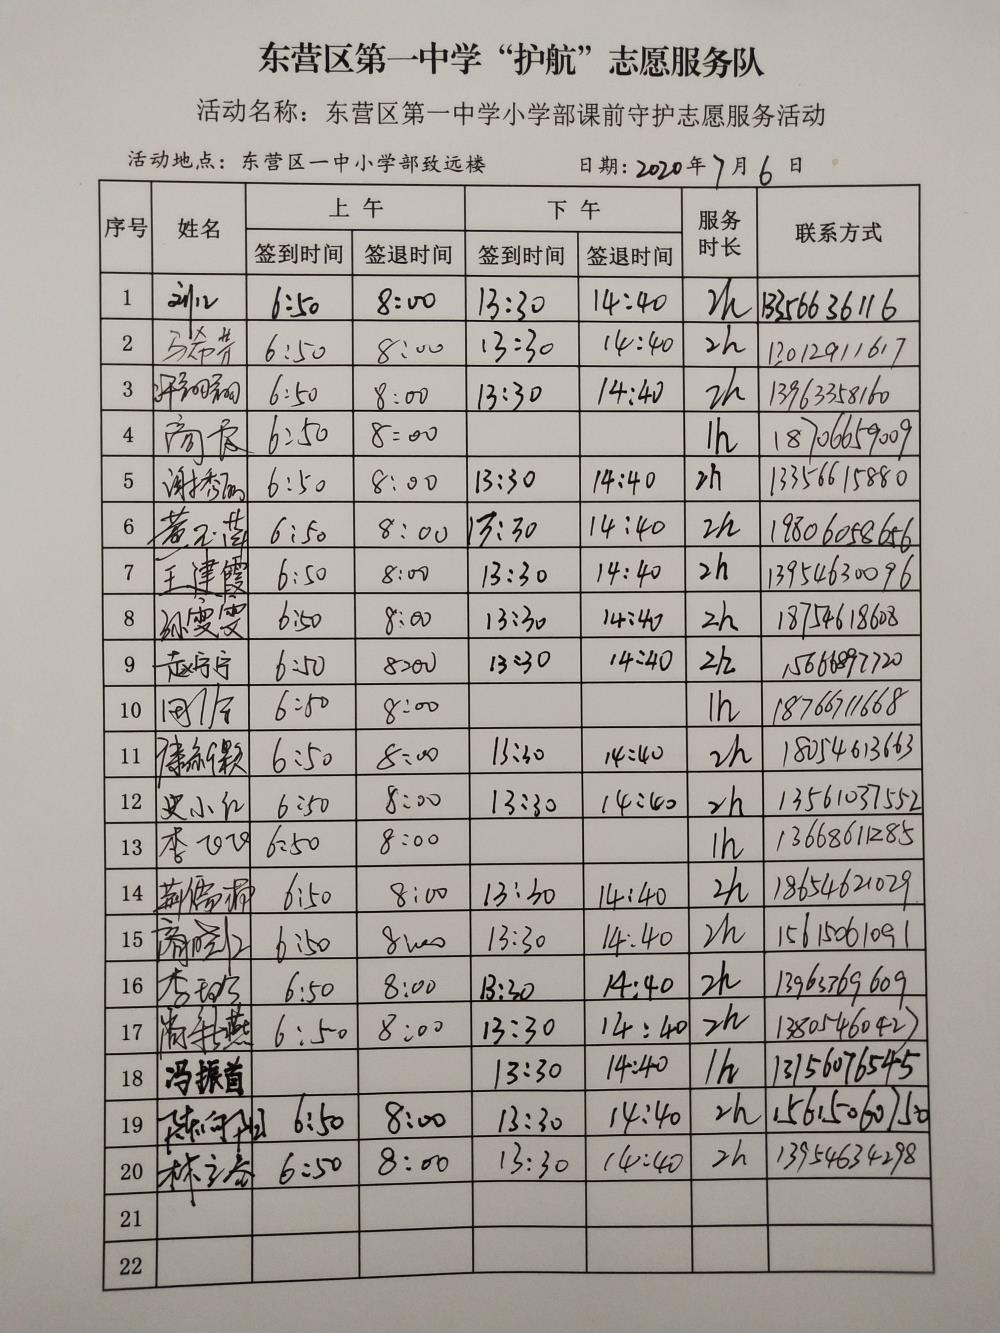 东营区第一中学“护航”志愿服务队
活动名称：东营区第一中学小学部课前守护志愿服务活动
活动地点：东营区一中小学部致远楼 日期：2020年7月6日
序号 姓名 上午 下午 服务时长 联系方式
签到时间 签退时间 签到时间 签退时间
1 6:50 8:00 13:30 14:40 2h 13356636116
2 马希芳 6:50 8:00 13:30 14:40 2h 13012911617
3 6:50 8:00 13:30 14:40 2h 13963358160
4 商霞 6:50 8:00 1h 18706659009
5 谢秀丽 6:50 8:00 13:30 14:40 2h 13356615880
6 黄玉花 6:50 8:00 13:30 14:40 2h 19806058656
7 王建霞 6:50 8:00 13:30 14:40 2h 13954630096
8 孙雯雯 6:50 8:00 13:30 14:40 2h 18754618608
9 赵宁宁 6:50 8:00 13:30 14:40 2h 15666897720
10 6:50 8:00 1h 18766711668
11 6:50 8:00 13:30 14:40 2h 18054613663
12 史小红 6:50 8:00 13:30 14:40 2h 13561037552
13 李飞飞 6:50 8:00 1h 13668611285
14 荆儒 6:50 8:00 13:30 14:40 2h 18654621029
15 商晓红 6:50 8:00 13:30 14:40 2h 15615061091
16 李 6:50 8:00 13:30 14:40 2h 13963369609
17 尚 燕 6:50 8:00 13:30 14:40 2h 13805460427
18 冯振首 13:30 14:40 1h 13156076545
19 陈向阳 6:50 8:00 13:30 14:40 2h 15615060750
20 林立春 6:50 8:00 13:30 14:40 2h 13954634298
21
22